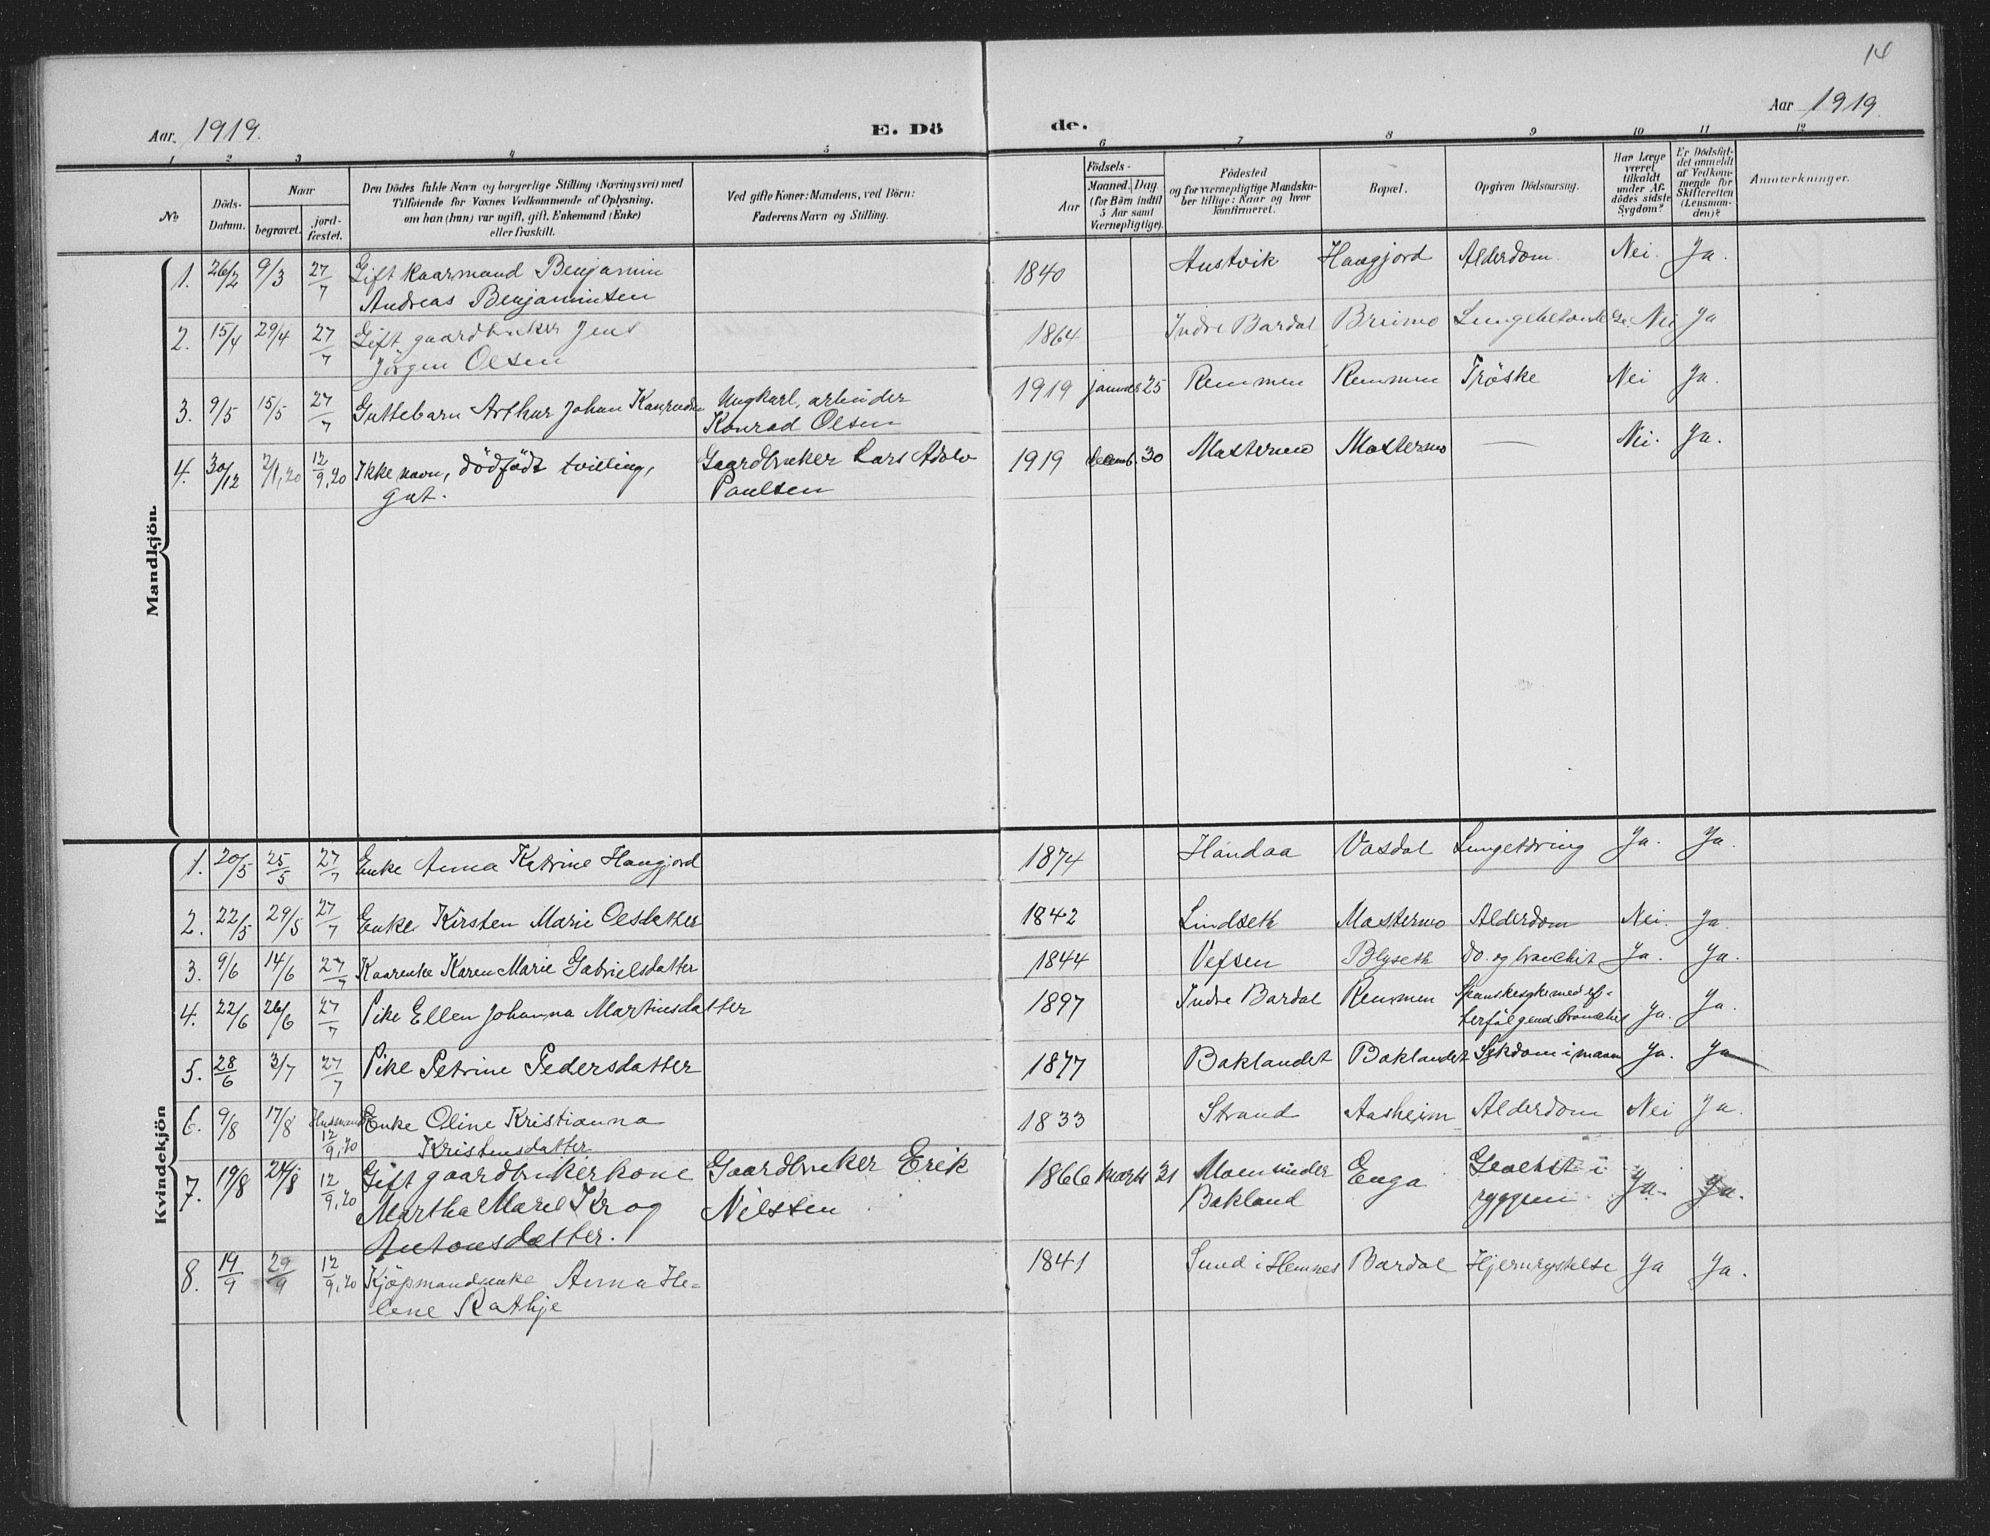 14
Aar 1919.
E. Dö
de.
Aar 1919.
1 2 3 4 5 6 7 8 9 10 11 12
No
Döds-
Datum.
Naar
begravet.
jord-
fæstet.
Den Dödes fulde Navn og borgerlige Stilling (Næringsvei) med
Tilföiende for Voxnes Vedkommende af Oplysning,
om han (hun) var ugift, gift, Enkemand (Enke)
eller fraskilt.
Ved gifte Koner: Mandens, ved Börn:
Faderens Navn og Stilling.
Aar
Födsels-
Maaned. Dag.
(for Börn indtil
5 Aar samt
Værnepligtige).
Födested
og for værnepligtige Mandska-
ber tillige: Naar og hvor
konfirmeret.
Bopæl.
Opgiven Dödsaarsag.
Har Læge
været
tilkaldt
under Af-
dödes sidste
Sygdom?
Er Dödsfal-
det anmeldt
af Vedkom-
mende for
Skifteretten
(Lensman-
den)?
Anmærkninger.
Mandkjön.
1. 26/2 9/3 27/7 Gift kaarmand Benjamin
Andreas Benjaminsen
1840 Austvik Haugjord Alderdom. Nei. Ja.
2. 15/4 29/4 27/7 Gift gaardbruker Jens
Jörgen Olsen
1864 Indre Bardal Bruimo Nei Ja
3. 9/5 15/5 27/7 Guttebarn Arthur Johan
Ungkarl, arbeider
Konrad Olsen
1919 januar 25 Remmen Remmen Tröske Nei Ja.
4. 30/12 2/1,20 12/9,20 Ikke navn, dödfödt tvilling,
gut.
Gaardbruker Lars Adolv
Paulsen
1919 decemb. 30 Mastermo Mastermo — Nei. Ja.
Kvindekjön
1. 20/5 25/5 27/7 Enke Anna Katrine Haugjord
1874 Handaa Vasdal Lungetæring Ja. Ja.
2. 22/5 29/5 27/7 Enke Kirsten Marie Olsdatter
1842 Lindseth Mastermo Alderdom Nei. Ja.
3. 9/6 14/6 27/7 Kaarenke Karen Marie Gabrielsdatter
1844 Vefsen Blyseth Do. og bronchit Ja. Ja.
4. 22/6 26/6 27/7 Pike Ellen Johanna Martinsdatter
1897 Indre Bardal Remmen Spanskesyke med ef-
terfölgend Bronchit Ja. Ja.
5. 28/6 3/7 27/7 Pike Petrine Pedersdatter
1877 Baklandet Baklandet Sykdom i maven Ja. Ja
6. 9/8 17/8 12/9,20 Enke Oline Kristianna
Kristensdatter
1833 Strand Aasheim Alderdom Nei Ja.
7. 19/8 24/8 12/9,20 Gift gaardbrukerkone
Martha Marel Krog
Antonsdatter.
Gaardbruker Erik
Nilssen
1866 marts 31 Moen under
Bakland Enga i
ryggen Ja. Ja.
8. 19/9 29/9 12/9,20 Kjöpmandsenke Anna He-
lene Rathje
1841 Sund i Hemnes Bardal Hjernrystelse Ja Ja.